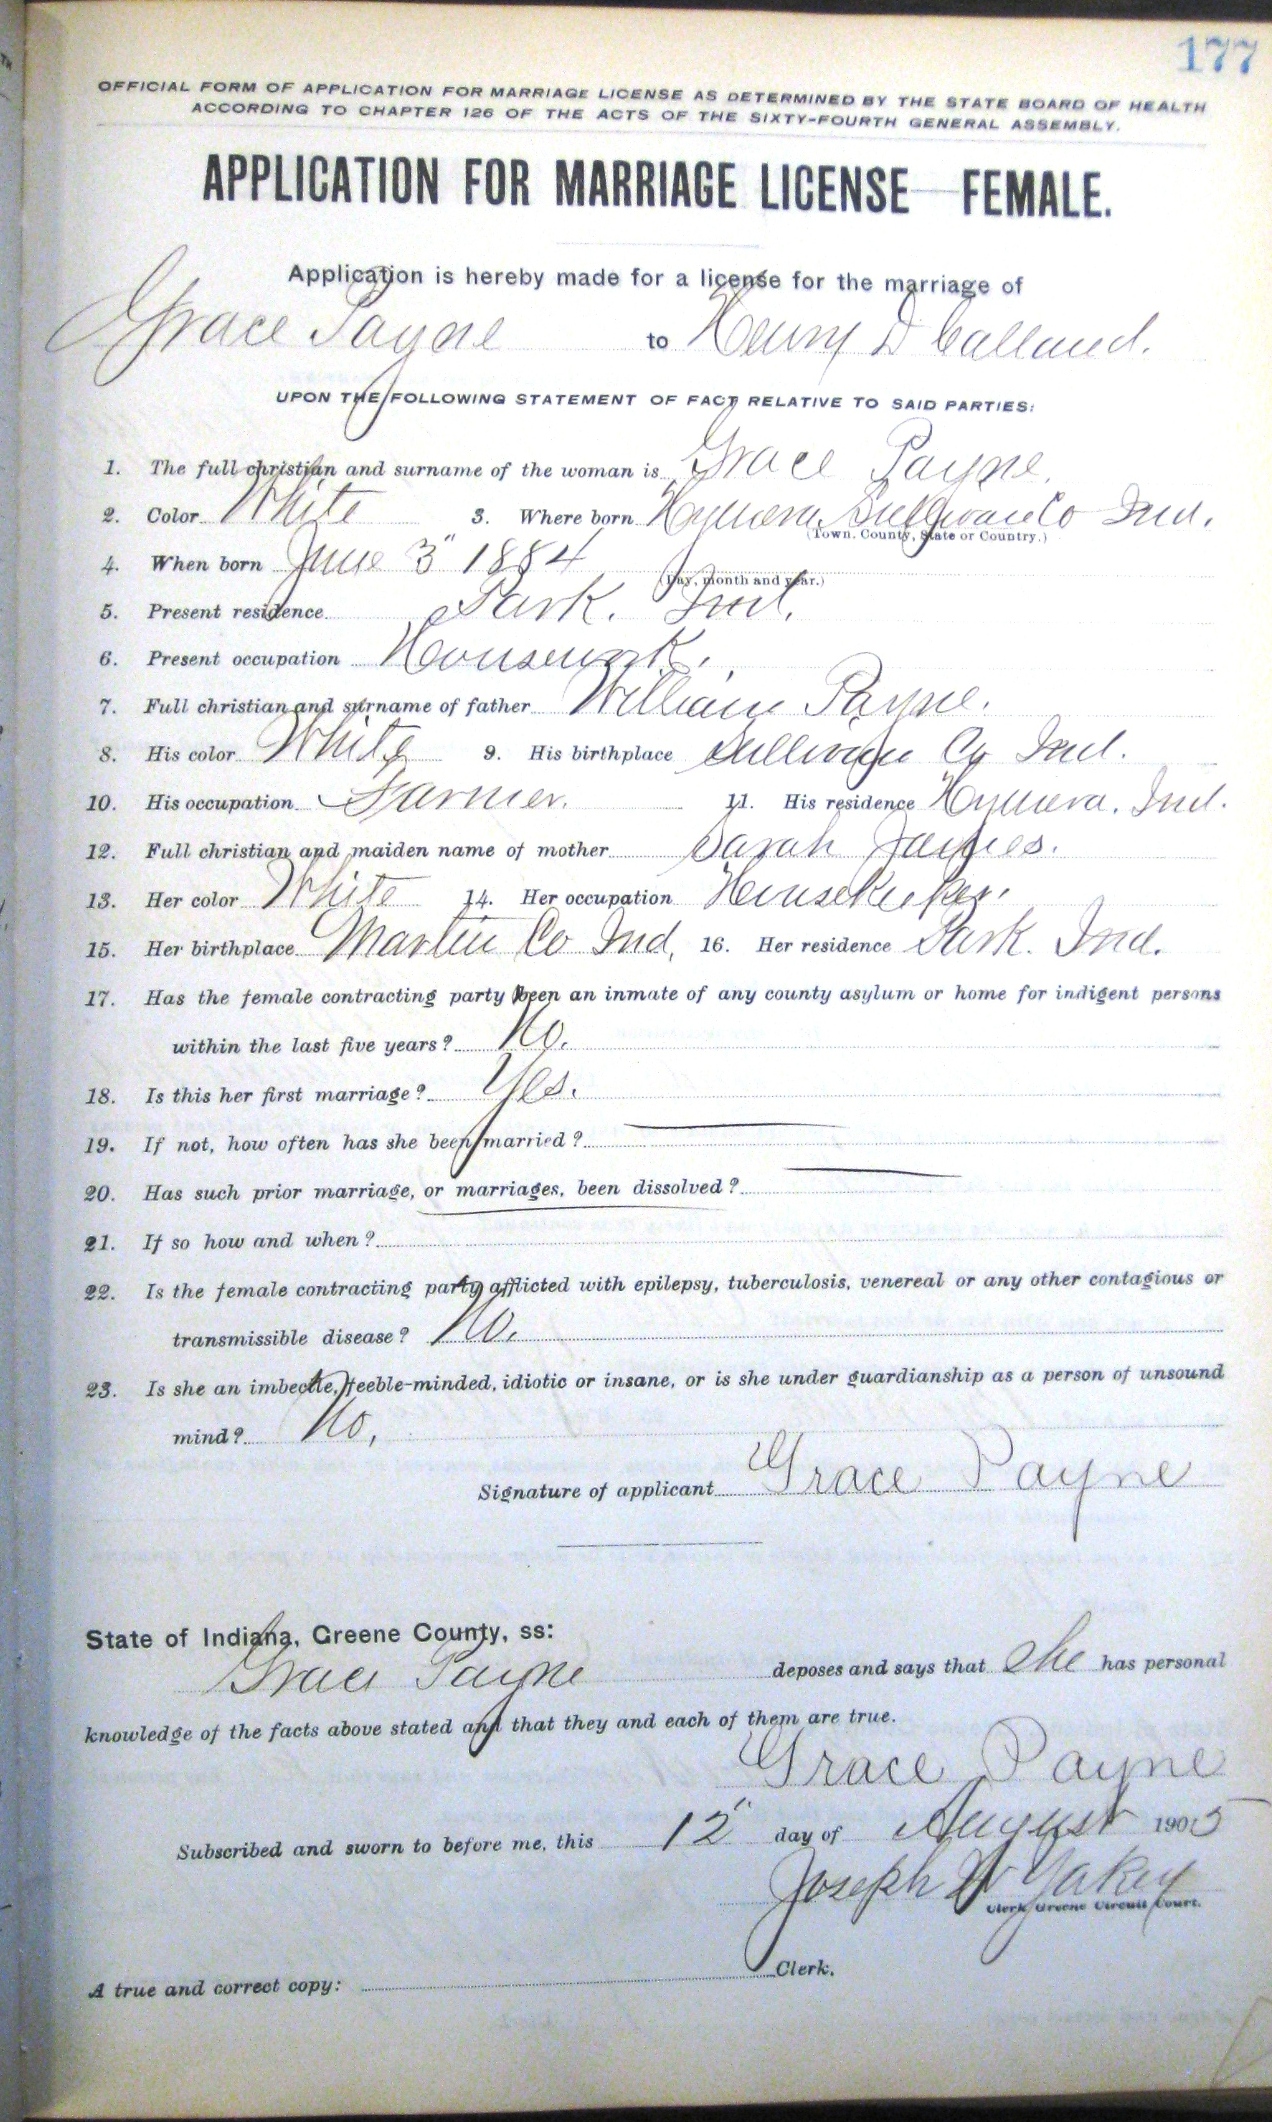 177
OFFICIAL FORM OF APPLICATION FOR MARRIAGE LICENSE AS DETERMINED BY THE STATE BOARD OF HEALTH
ACCORDING TO CHAPTER 126 OF THE ACTS OF THE SIXTY-FOURTH GENERAL ASSEMBLY.
APPLICATION FOR MARRIAGE LICENSE—FEMALE.
Application is hereby made for a license for the marriage of
Grace Payne to Henry D Calland.
UPON THE FOLLOWING STATEMENT OF FACT RELATIVE TO SAID PARTIES:
1. The full christian and surname of the woman is Grace Payne.
2. Color White 3. Where born Hymera Sullivan Co Ind.
(Town, County, State or Country.)
4. When born June 3" 1884
(Day, month and year.)
5. Present residence Park. Ind.
6. Present occupation Housework.
7. Full christian and surname of father William Payne.
8. His color White 9. His birthplace Sullivan Co Ind.
10. His occupation Farmer. 11. His residence Hymera. Ind.
12. Full christian and maiden name of mother Sarah
13. Her color White 14. Her occupation Housekeeper.
15. Her birthplace Martin Co Ind, 16. Her residence Park. Ind.
17. Has the female contracting party been an inmate of any county asylum or home for indigent persons
within the last five years? No.
18. Is this her first marriage? Yes.
19. If not, how often has she been married?
20. Has such prior marriage, or marriages, been dissolved?
21. If so how and when?
22. Is the female contracting party afflicted with epilepsy, tuberculosis, venereal or any other contagious or
transmissible disease? No.
23. Is she an imbecile, feeble-minded, idiotic or insane, or is she under guardianship as a person of unsound
mind? No,
Signature of applicant Grace Payne
State of Indiana, Greene County, ss:
Grace Payne deposes and says that she has personal
knowledge of the facts above stated and that they and each of them are true.
Grace Payne
Subscribed and sworn to before me, this 12" day of August 1905
Joseph W Yakey
Clerk Greene Circuit Court.
A true and correct copy: Clerk.